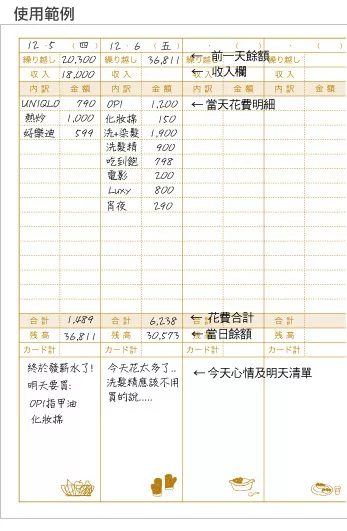 使用範例
12・5 (四) 12・6 (五) ・ ( ) ・ ( )
繰り越し 20,300 繰り越し 36,811 繰り越し ← 前一天餘額 繰り越し
収入 18,000 収入 収入 ← 收入欄 収入
内訳 金額 内訳 金額 内訳 金額 内訳 金額
UNIQLO 790 OPI 1,200 ← 當天花費明細
熱炒 1,000 化妝棉 150
好樂迪 599 洗+染髮 1,900
洗髮精 900
吃到飽 798
電影 200
Luxy 800
宵夜 290
合計 1,489 合計 6,238 合計 ← 花費合計 合計
残高 36,811 残高 30,573 残高 ← 當日餘額 残高
カード計 カード計 カード計 カード計
終於發薪水了! 今天花太多了.. ← 今天心情及明天清單
明天要買: 洗髮精應該不用
OPI指甲油 買的說.....
化妝棉